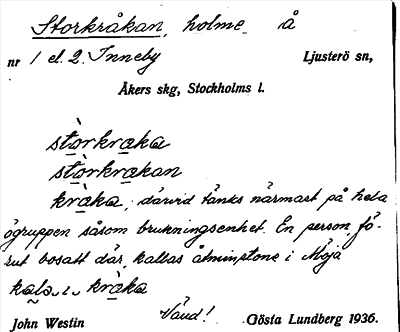 Storkråkan, holme å
nr 1 el. 2. Inneby Ljusterö sn,
Åkers skg, Stockholms l.
stòrkraka
stòrkrakan
kràka, därvid tänks närmast på hela
ögruppen såsom brukningsenhet. En person, fö-
rut bosatt där kallas åtminstone i Möja
kràka
Vänd!
John Westin Gösta Lundberg 1936.